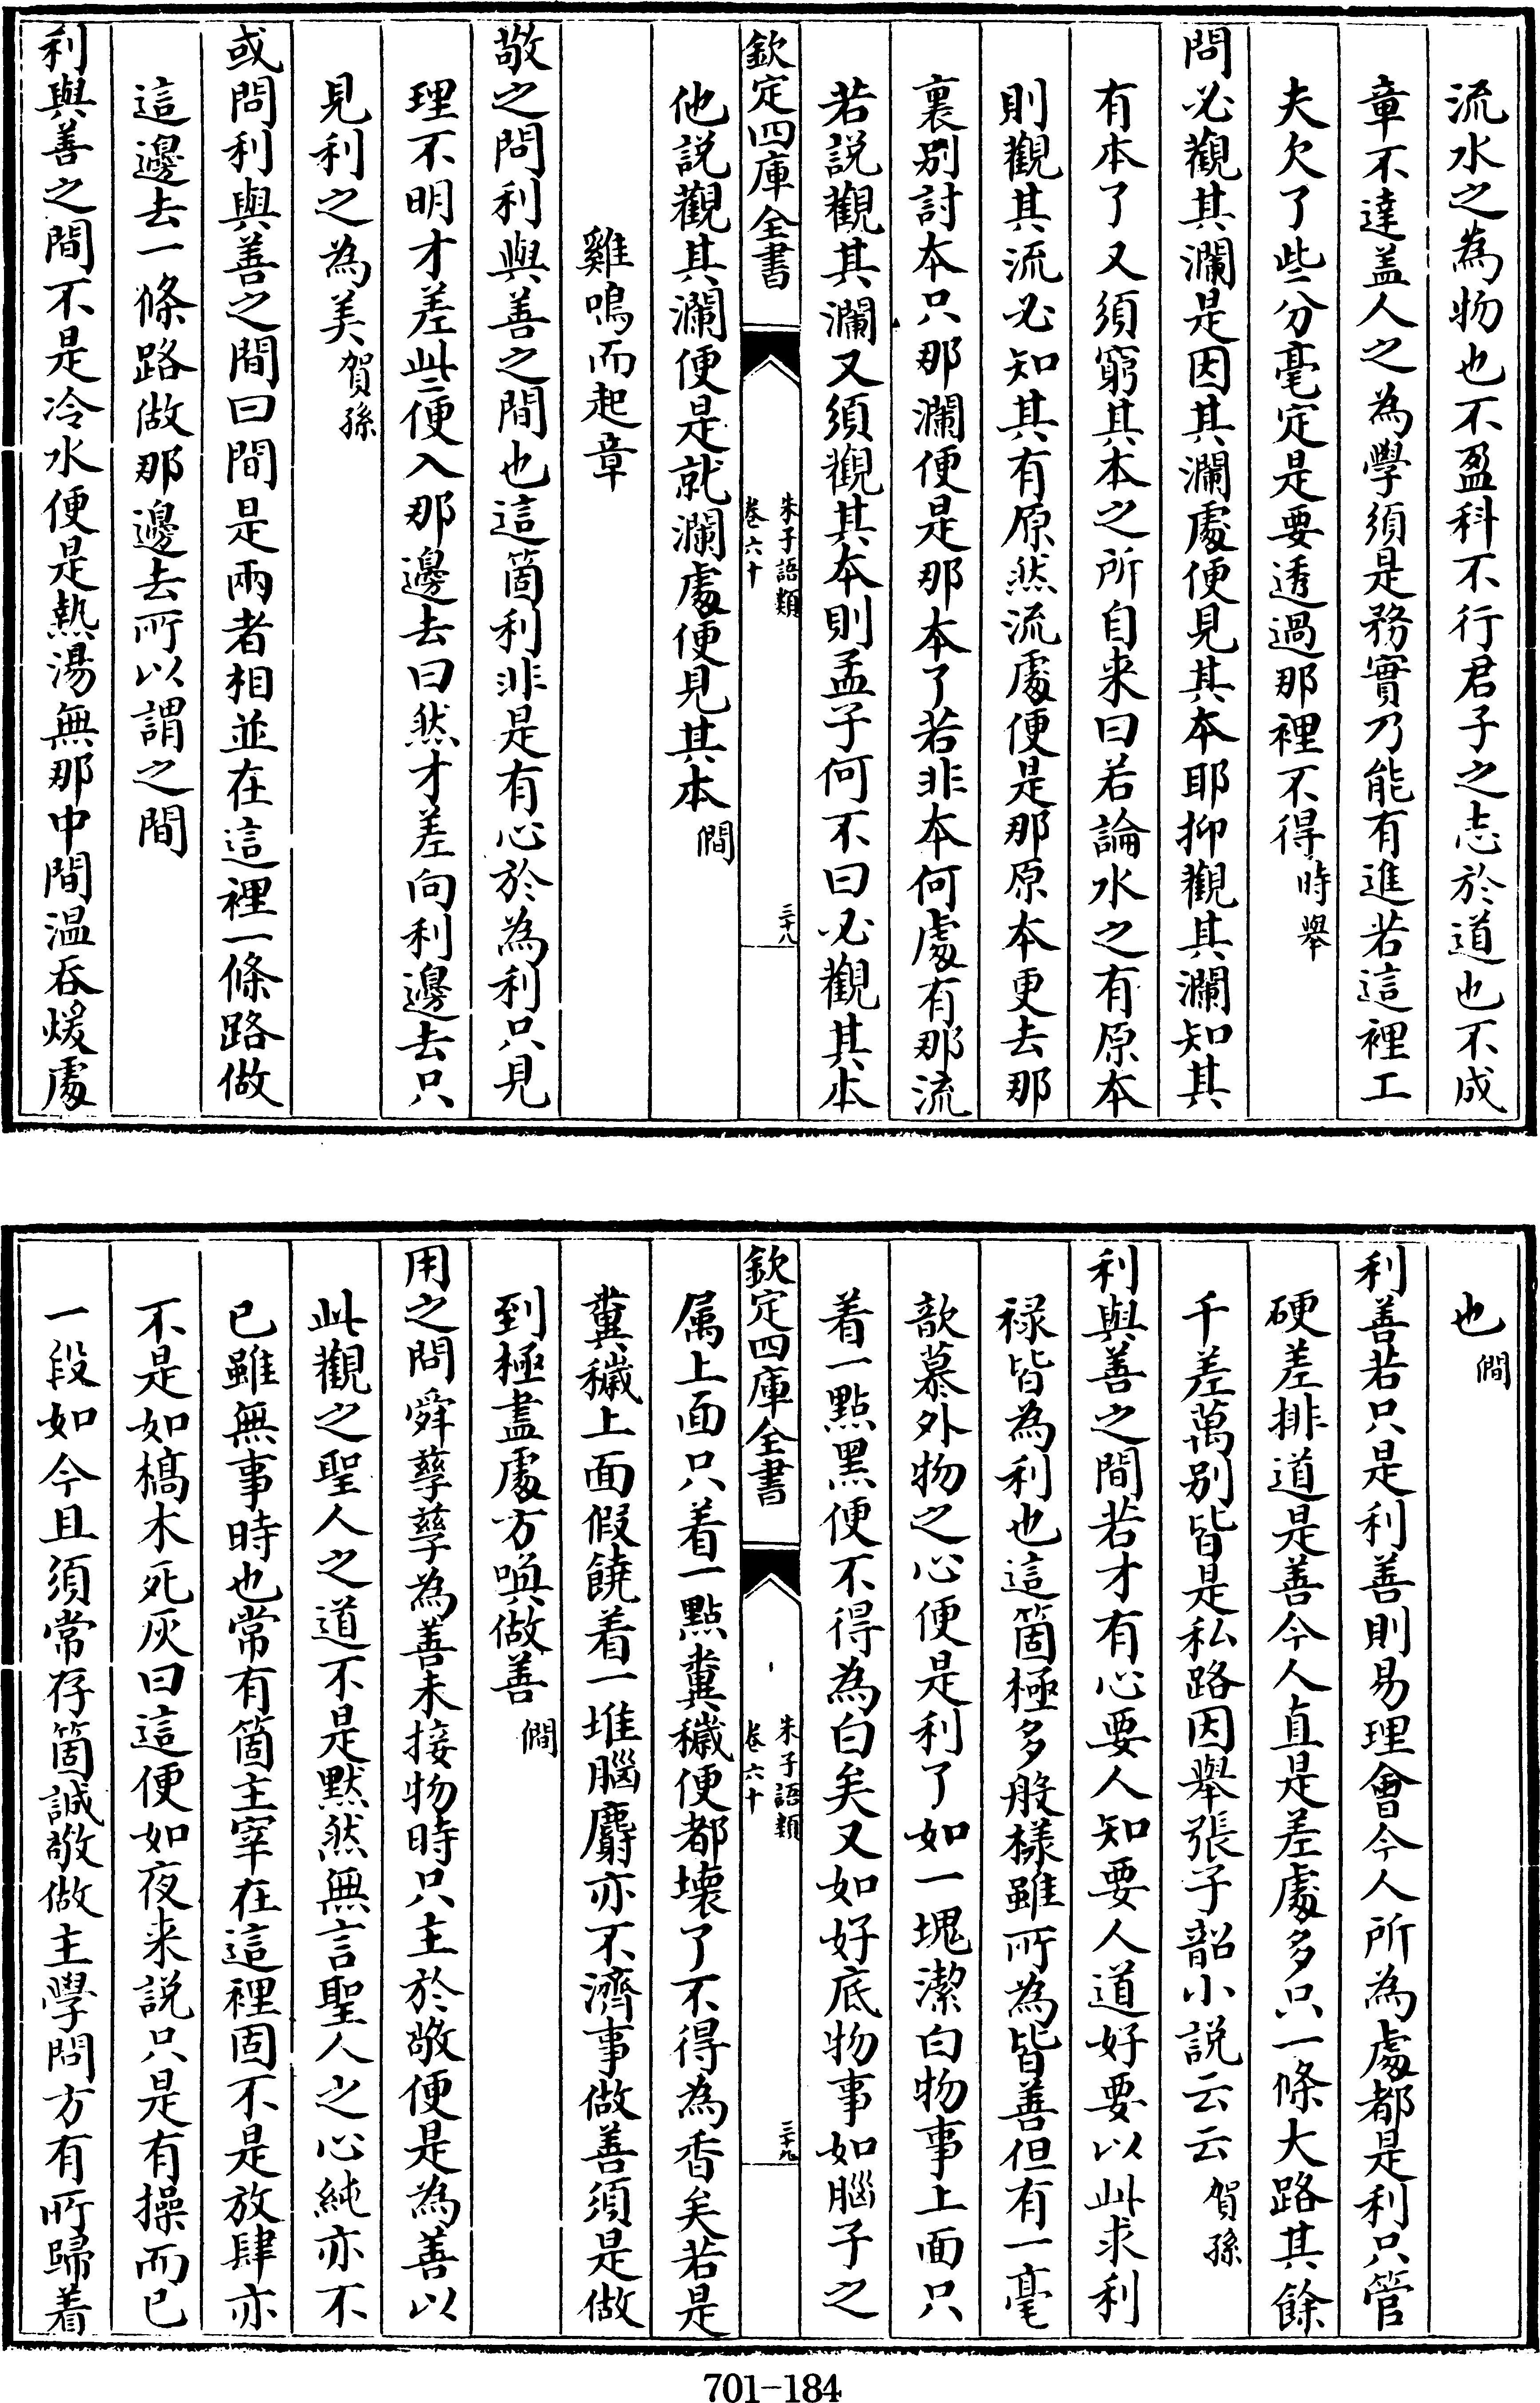 流水之為物也不盈科不行君子之志於道也不成
章不達盖人之為學須是務實乃能有進若這裡工
夫欠了些分毫定是要透過那裡不得時舉
問必觀其瀾是因其瀾處便見其本耶抑觀其瀾知其
有本了又須窮其本之所自来曰若論水之有原本
則觀其流必知其有原然流處便是那原本更去那
裏别討本只那瀾便是那本了若非本何處有那流
若説觀其瀾又須觀其本則孟子何不曰必觀其本
欽定四庫全書
朱子語類
卷六十
三十八
他説觀其瀾便是就瀾處便見其本僩
雞鳴而起章
敬之問利與善之間也這箇利非是有心於為利只見
理不明才差些便入那邊去曰然才差向利邊去只
見利之為美賀孫
或問利與善之間曰間是兩者相並在這裡一條路做
這邊去一條路做那邊去所以謂之間
利與善之間不是冷水便是熱湯無那中間温吞煖處
也僩
利善若只是利善則易理會今人所為處都是利只管
硬差排道是善今人直是差處多只一條大路其餘
千差萬别皆是私路因舉張子韶小説云云賀孫
利與善之間若才有心要人知要人道好要以此求利
禄皆為利也這箇極多般樣雖所為皆善但有一毫
歆慕外物之心便是利了如一塊潔白物事上面只
着一點黑便不得為白矣又如好底物事如腦子之
欽定四庫全書
朱子語類
卷六十
三十九
属上面只着一點糞穢便都壊了不得為香矣若是
糞穢上面假饒着一堆腦麝亦不濟事做善須是做
到極盡處方喚做善僩
用之問舜孳孳為善未接物時只主於敬便是為善以
此觀之聖人之道不是黙然無言聖人之心純亦不
已雖無事時也常有箇主宰在這裡固不是放肆亦
不是如槁木死灰曰這便如夜来説只是有操而已
一段如今且須常存箇誠敬做主學問方有所歸着
701-184